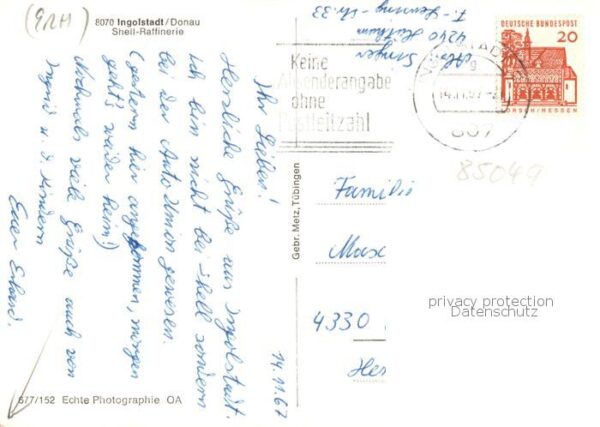 (9RH)
8070 Ingolstadt/Donau
Shell-Raffinerie
14.11.67
Ihr Lieben!
Herzliche Grüße aus Ingolstadt.
Ich bin nicht bei Shell sondern
bei der Auto Union gewesen.
(gestern hier angekommen, morgen
geht's wieder heim!)
Nochmals viele Grüße auch von
Ingrid u. d. Kindern
Euer
577/152 Echte Photographie OA
Gebr. Metz, Tübingen
4240
Str. 33
Keine
Absenderangabe
ohne
Postleitzahl
14.11.67
807
DEUTSCHE BUNDESPOST
20
LORSCH/HESSEN
85049
Familie
Max
4330
privacy protection
Datenschutz